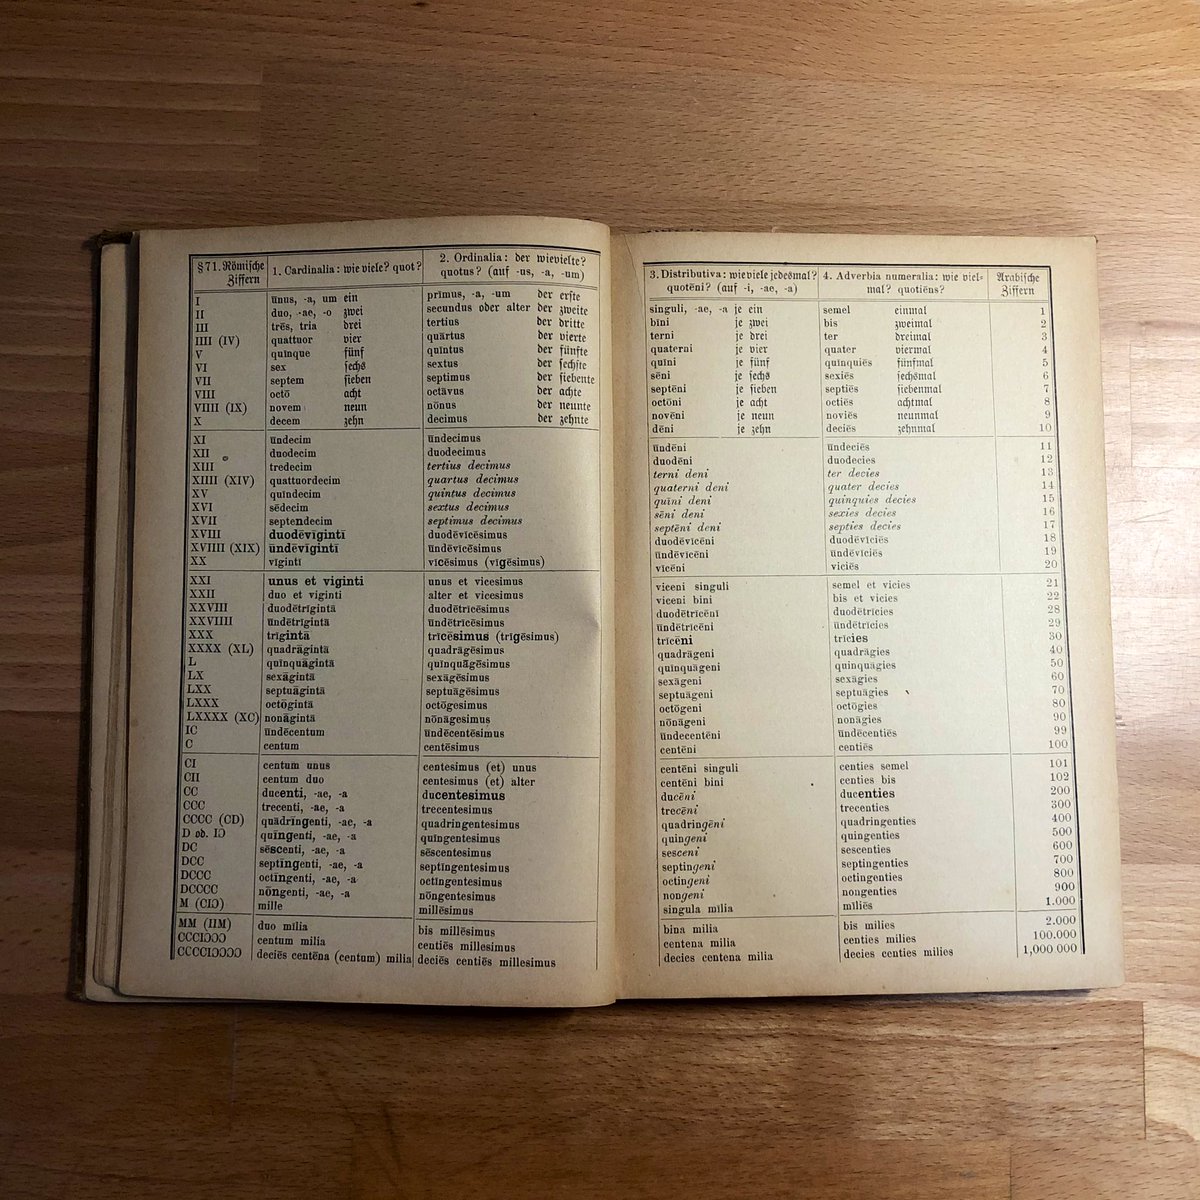 § 71. Römische Ziffern 1. Cardinalia: wie viele? quot? 2. Ordinalia: der wievielte? quotus? (auf -us, -a, -um)
I ūnus, -a, um ein prīmus, -a, -um der erste
II duo, -ae, -o zwei secundus oder alter der zweite
III trēs, tria drei tertius der dritte
IIII (IV) quattuor vier quārtus der vierte
V quīnque fünf quīntus der fünfte
VI sex sechs sextus der sechste
VII septem sieben septimus der siebente
VIII octō acht octāvus der achte
VIIII (IX) novem neun nōnus der neunte
X decem zehn decimus der zehnte
XI ūndecim ūndecimus
XII duodecim duodecimus
XIII tredecim tertius decimus
XIIII (XIV) quattuordecim quartus decimus
XV quīndecim quīntus decimus
XVI sēdecim sextus decimus
XVII septendecim septimus decimus
XVIII duodēvīgintī duodēvīcēsimus
XVIIII (XIX) ūndēvīgintī ūndēvīcēsimus
XX vīgintī vīcēsimus (vīgēsimus)
XXI unus et viginti unus et vicesimus
XXII duo et viginti alter et vicesimus
XXVIII duodētrīgintā duodētrīcēsimus
XXVIIII ūndētrīgintā ūndētrīcēsimus
XXX trīgintā trīcēsimus (trīgēsimus)
XXXX (XL) quadrāgintā quadrāgēsimus
L quīnquāgintā quīnquāgēsimus
LX sexāgintā sexāgēsimus
LXX septuāgintā septuāgēsimus
LXXX octōgintā octōgesimus
LXXXX (XC) nonāgintā nōnāgesimus
IC ūndēcentum ūndēcentēsimus
C centum centēsimus
CI centum unus centesimus (et) unus
CII centum duo centesimus (et) alter
CC ducenti, -ae, -a ducentesimus
CCC trecenti, -ae, -a trecentesimus
CCCC (CD) quādrīngenti, -ae, -a quadringentesimus
D od. IƆ quīngenti, -ae, -a quīngentesimus
DC sēscenti, -ae, -a sēscentesimus
DCC septīngenti, -ae, -a septīngentesimus
DCCC octīngenti, -ae, -a octīngentesimus
DCCCC nōngenti, -ae, -a nōngentesimus
M (CIƆ) mille millēsimus
MM (IIM) duo milia bis millēsimus
CCCIƆƆƆ centum milia centiēs millesimus
CCCCIƆƆƆƆ deciēs centēna (centum) milia deciēs centiēs millesimus
3. Distributiva: wieviele jedesmal? quotēni? (auf -i, -ae, -a) 4. Adverbia numeralia: wie vielmal? quotiēns? Arabische Ziffern
singuli, -ae, -a je ein semel einmal 1
bīni je zwei bis zweimal 2
terni je drei ter dreimal 3
quaterni je vier quater viermal 4
quīni je fünf quīnquiēs fünfmal 5
sēni je sechs sexiēs sechsmal 6
septēni je sieben septiēs siebenmal 7
octōni je acht octiēs achtmal 8
novēni je neun noviēs neunmal 9
dēni je zehn deciēs zehnmal 10
ūndēni ūndeciēs 11
duodēni duodecies 12
terni deni ter decies 13
quaterni deni quater decies 14
quīni deni quinquies decies 15
sēni deni sexies decies 16
septēni deni septies decies 17
duodēvīcēni duodēvīciēs 18
ūndēvīcēni ūndēvīciēs 19
vīcēni vīciēs 20
viceni singuli semel et vicies 21
viceni bini bis et vicies 22
duodētrīcēnī duodētrīcies 28
ūndētrīcēni ūndētrīcies 29
trīcēni trīcies 30
quadrāgeni quadrāgies 40
quīnquāgeni quīnquāgies 50
sexāgeni sexāgies 60
septuāgeni septuāgies 70
octōgeni octōgies 80
nōnāgeni nonāgies 90
ūndecentēni ūndēcentiēs 99
centēni centiēs 100
centēni singuli centies semel 101
centēni bini centies bis 102
ducēni ducenties 200
trecēni trecenties 300
quadringēni quadringenties 400
quingeni quingenties 500
sesceni sescenties 600
septingeni septingenties 700
octingeni octingenties 800
nongeni nongenties 900
singula mīlia mīliēs 1.000
bina milia bis milies 2.000
centena milia centies milies 100.000
decies centena milia decies centies milies 1,000 000